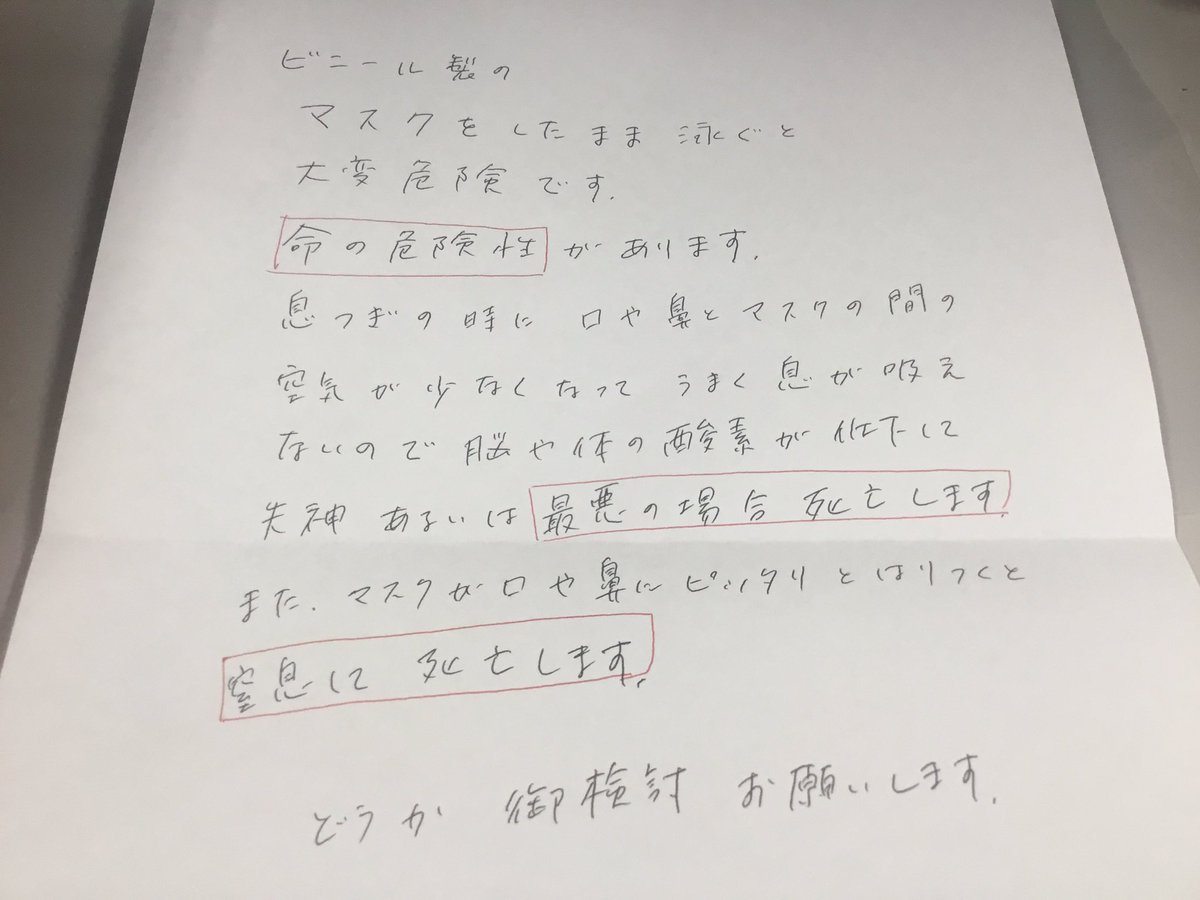 ビニール製の
マスクをしたまま泳ぐと
大変危険です.
命の危険性があります.
息つぎの時に口や鼻とマスクの間の
空気が少なくなってうまく息が吸え
ないので脳や体の酸素が低下して
失神あるいは最悪の場合死亡します.
また.マスクが口や鼻にピッタリとはりつくと
窒息して死亡します.
どうか御検討お願いします.